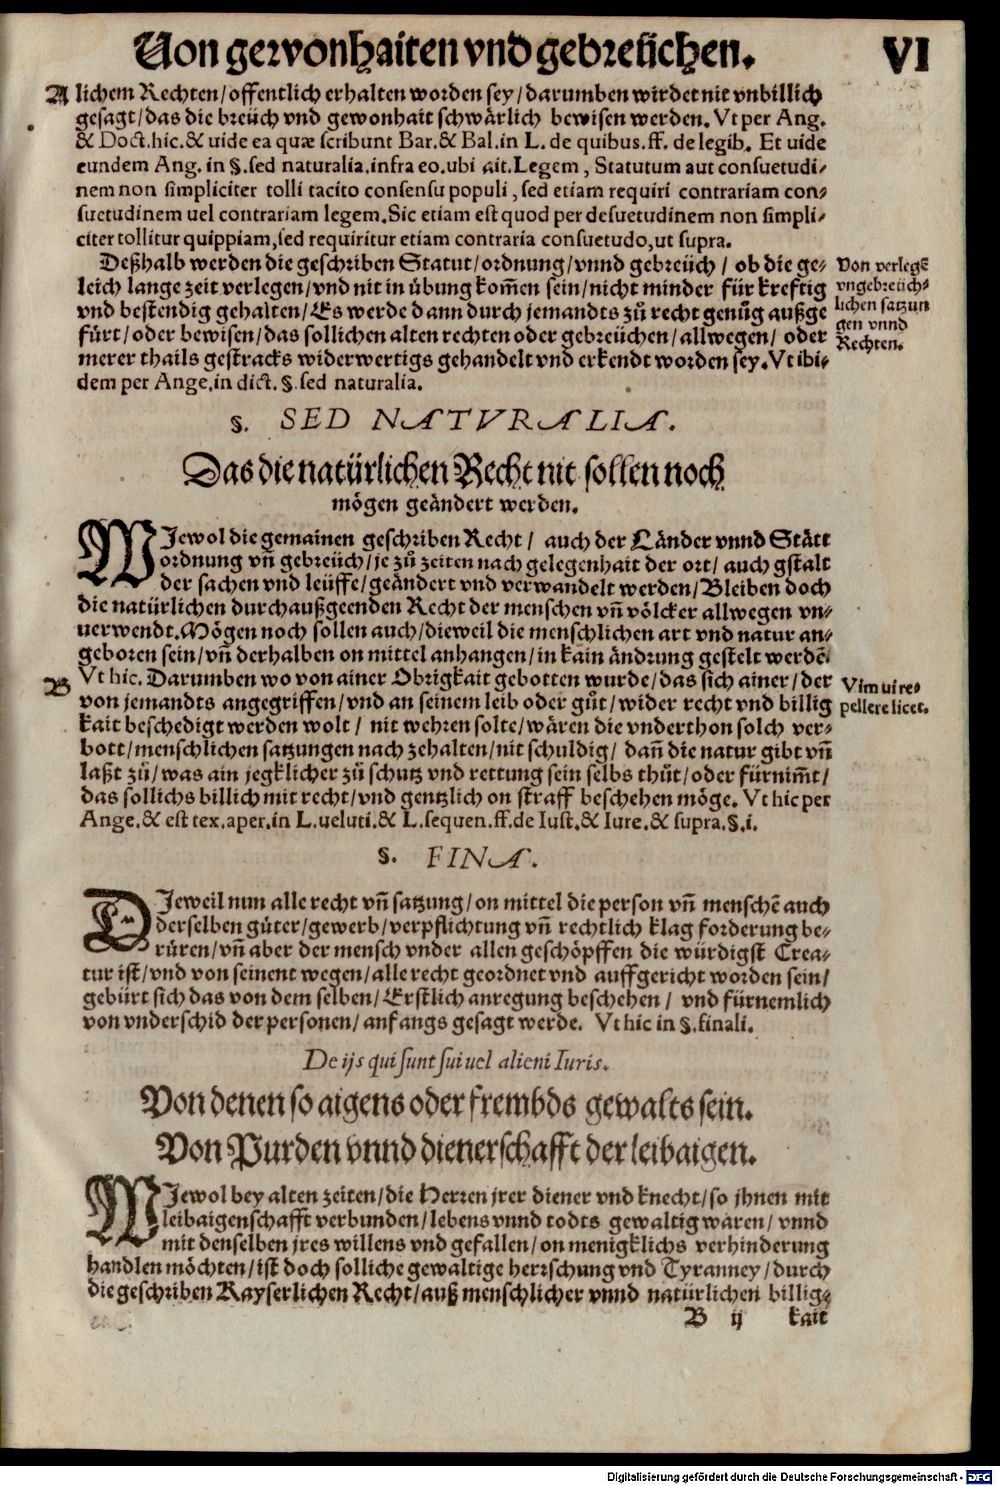 Von gewonhaiten vnd gebreüchen. VI
A lichem Rechten/offentlich erhalten worden sey/darumben wirdet nit vnbillich
gesagt/das die breüch vnd gewonhait schwärlich bewisen werden. Vt per Ang.
& Doct.hic.& uide ea quæ scribunt Bar.& Bal.in L. de quibus.ff. de legib. Et uide
eundem Ang. in §.sed naturalia.infra eo.ubi ait.Legem, Statutum aut consuetudi-
nem non simpliciter tolli tacito consensu populi, sed etiam requiri contrariam con-
suetudinem uel contrariam legem.Sic etiam est quod per desuetudinem non simpli-
citer tollitur quippiam,sed requiritur etiam contraria consuetudo,ut supra.
Deßhalb werden die geschriben Statut/ordnung/vnnd gebreüch/ ob die ge-
leich lange zeit verlegen/vnd nit in übung kom̃en sein/nicht minder für kreftig
vnd bestendig gehalten/Es werde dann durch jemandts zů recht genůg außge
fürt/oder bewisen/das sollichen alten rechten oder gebreüchen/allwegen/ oder
merer thails gestracks widerwertigs gehandelt vnd erkendt worden sey.Vt ibi-
dem per Ange.in dict. §.sed naturalia.
Von verlegẽ
vngebreüch-
lichen satzun
gen vnnd
Rechten.
§. SED NATVRALIA.
Das die natürlichen Recht nit sollen noch
mögen geändert werden.
WJewol die gemainen geschriben Recht/ auch der Länder vnnd Stätt
ordnung vñ gebreüch/je zů zeiten nach gelegenhait der ort/auch gstalt
der sachen vnd leüffe/geändert vnd verwandelt werden/Bleiben doch
die natürlichen durchaußgeenden Recht der menschen vñ völcker allwegen vn-
uerwendt.Mögen noch sollen auch/dieweil die menschlichen art vnd natur an-
geboren sein/vñ derhalben on mittel anhangen/in kain ändrung gestelt werdẽ.
B Vt hic. Darumben wo von ainer Obrigkait gebotten wurde/das sich ainer/der
von jemandts angegriffen/vnd an seinem leib oder gůt/wider recht vnd billig
kait beschedigt werden wolt/ nit wehren solte/wären die vnderthon solch ver-
bott/menschlichen satzungen nach zehalten/nit schuldig/ dañ die natur gibt vñ
laßt zů/was ain jegklicher zů schutz vnd rettung sein selbs thůt/oder fürnim̃t/
das sollichs billich mit recht/vnd gentzlich on straff beschehen möge. Vt hic per
Ange.& est tex.aper.in L.ueluti.& L.sequen.ff.de Iust.& Iure.& supra.§.i.
Vim ui re-
pellere licet.
§. FINA.
DJeweil nun alle recht vñ satzung/on mittel die person vñ menschẽ auch
derselben güter/gewerb/verpflichtung vñ rechtlich klag forderung be-
rüren/vñ aber der mensch vnder allen geschöpffen die würdigst Crea-
tur ist/vnd von seinent wegen/alle recht geordnet vnd auffgericht worden sein/
gebürt sich das von dem selben/Erstlich anregung beschehen/ vnd fürnemlich
von vnderschid der personen/anfangs gesagt werde. Vt hic in §.finali.
De ijs qui sunt sui uel alieni Iuris.
Von denen so aigens oder frembds gewalts sein.
Von Purden vnnd dienerschafft der leibaigen.
WJewol bey alten zeiten/die Herren jrer diener vnd knecht/so jhnen mit
leibaigenschafft verbunden/lebens vnnd todts gewaltig wären/ vnnd
mit denselben jres willens vnd gefallen/on menigklichs verhinderung
handlen möchten/ist doch solliche gewaltige herrschung vnd Tyranney/durch
die geschriben Kayserlichen Recht/auß menschlicher vnnd natürlichen billig-
B ij kait
Digitalisierung gefördert durch die Deutsche Forschungsgemeinschaft - DFG